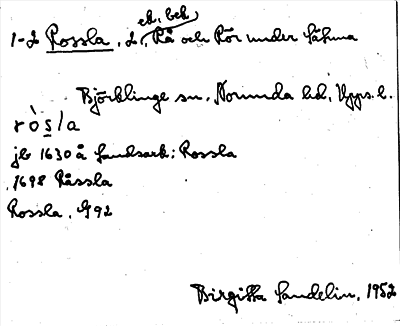 ek. bek.
1-2 Rossla, 2, Rå och Rör under Såhma
Björklinge sn. Norunda hd. Upps. l.
ròsla
jb 1630 å landsark: Rossla
1698 Råssla
Rossla, G92
Birgitta Sandelin, 1952